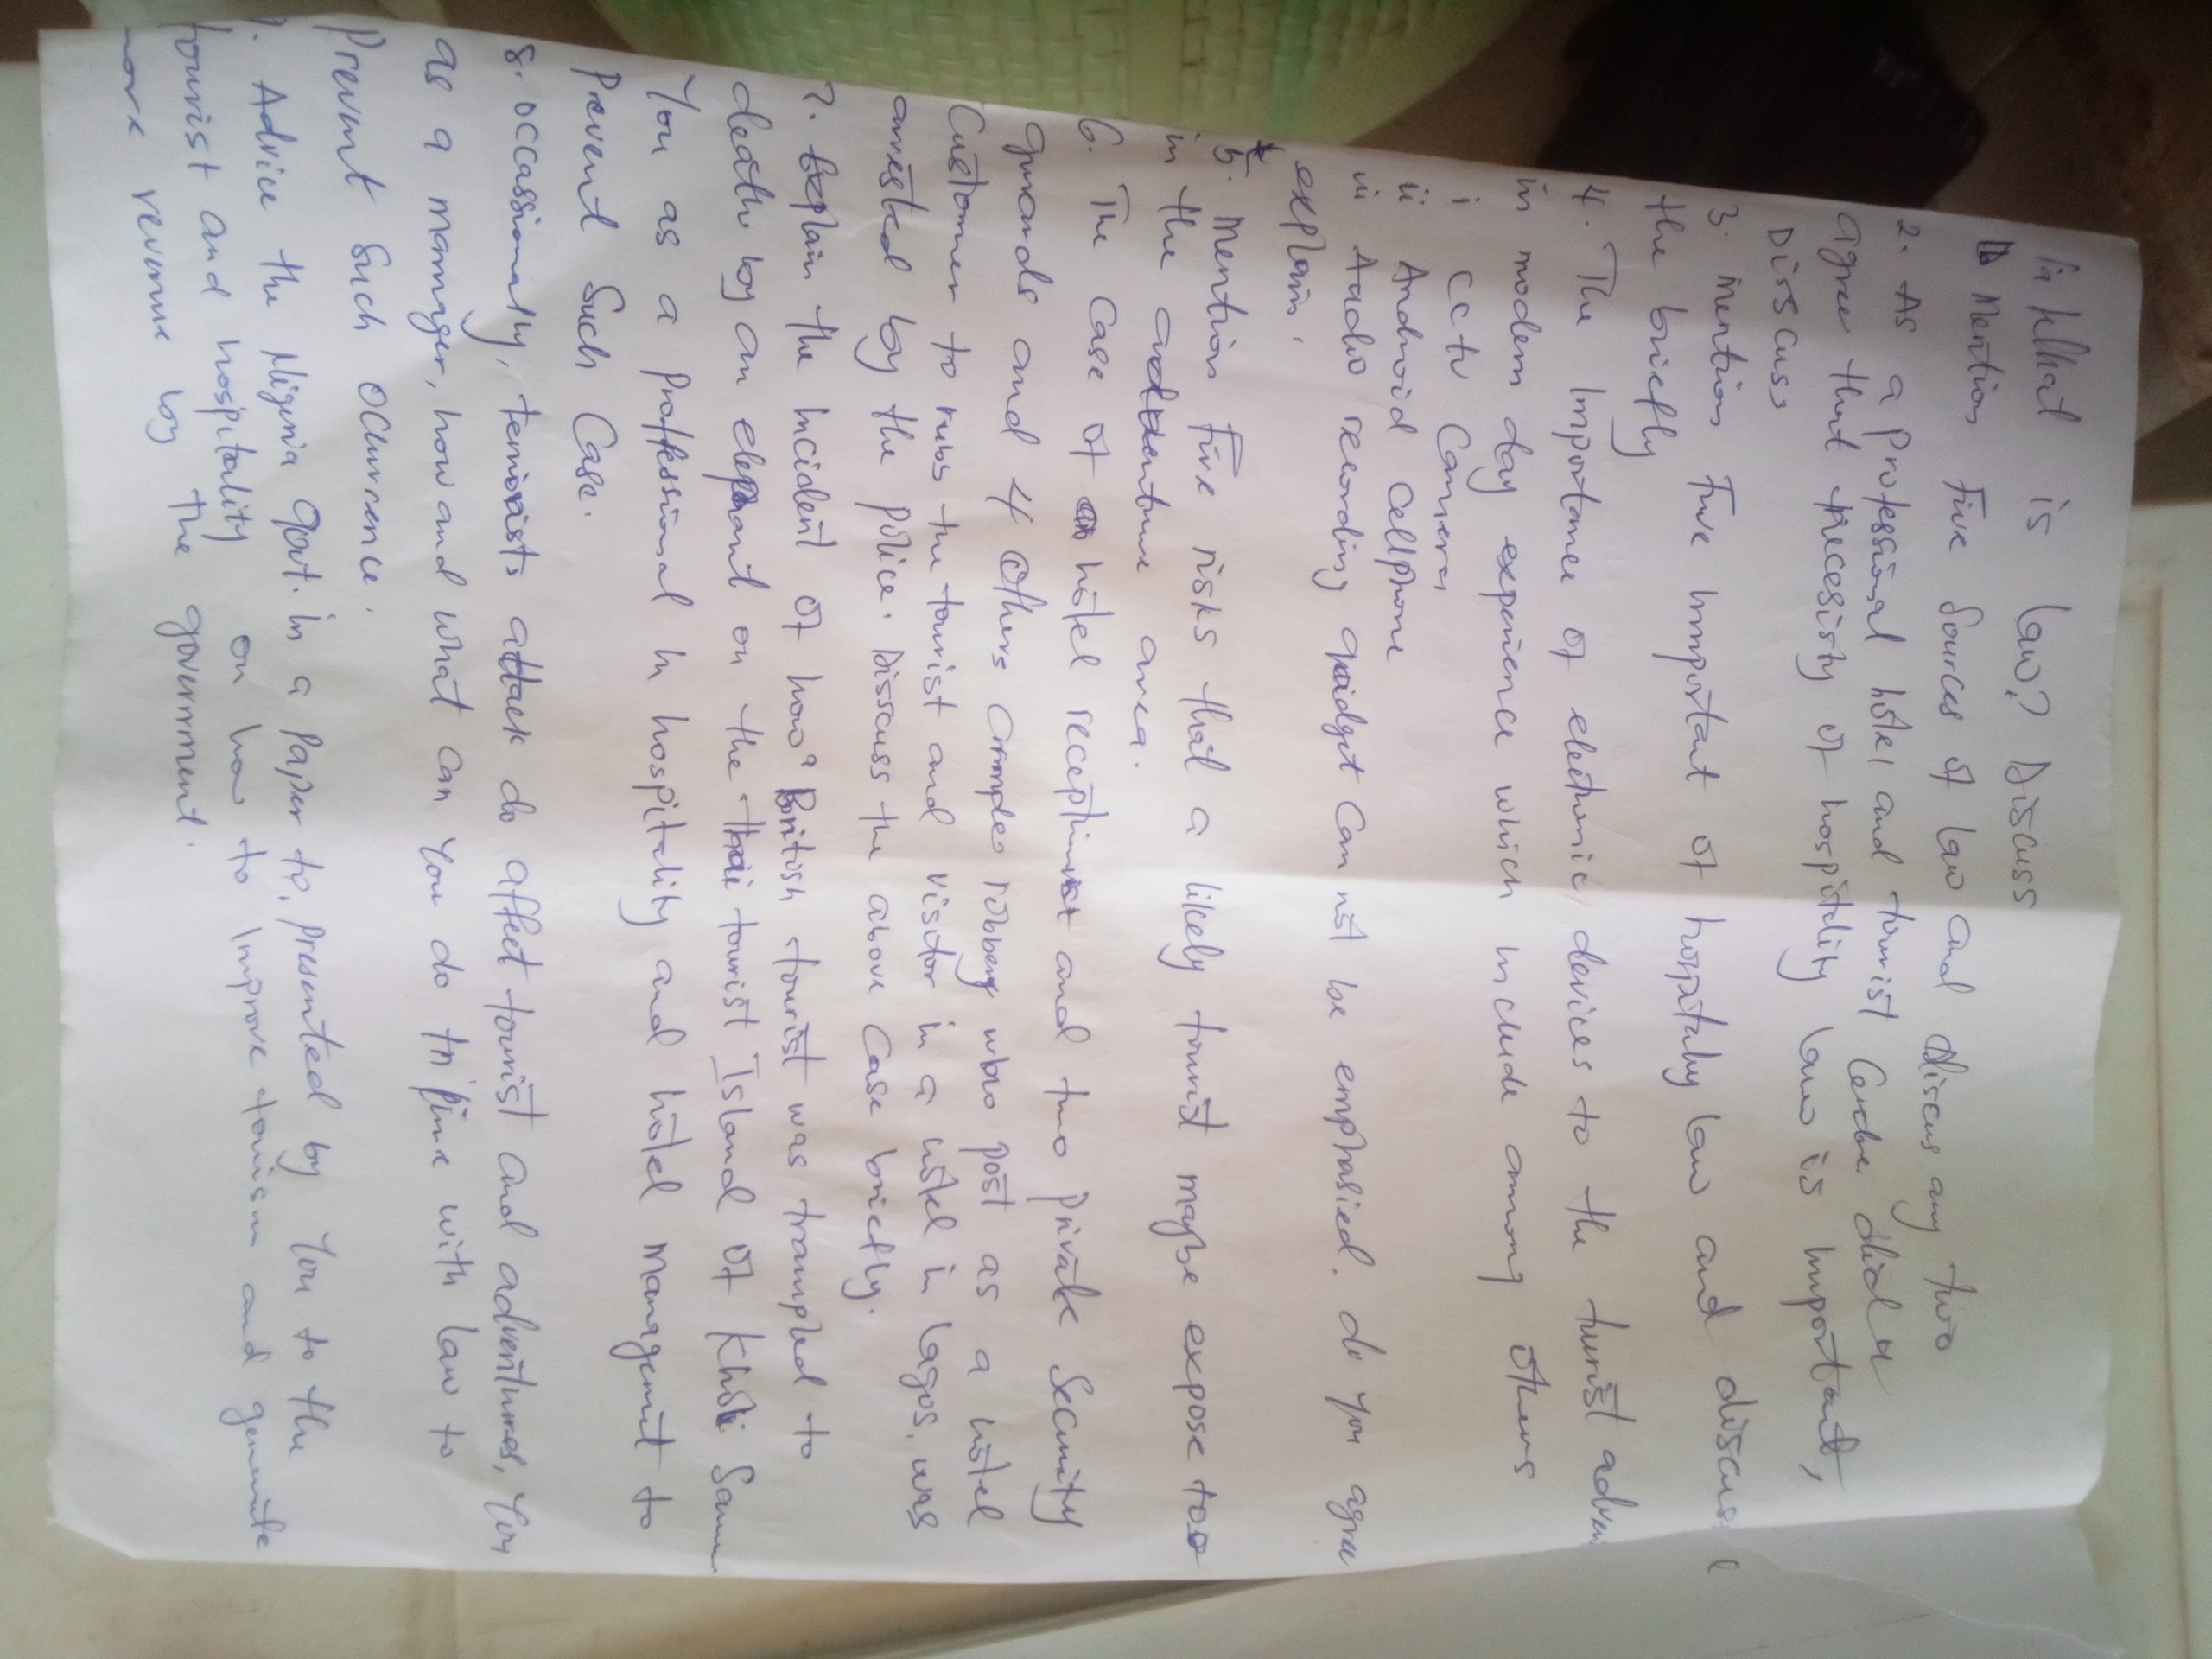 1a What is law? Discuss
b Mention Five Sources of law and discus any two
2. As a professional hotel and tourist
agree that necessity of hospitality law is important,
Discuss
3. mention Five important of hospitaly law and discuss
the briefly
4. The importance of electronic devices to the turist adven
in modern day experience which include among others
i CCTV Camera,
ii Android Cellphone
iii Audio recording gaidget can not be emphasied. do you agree
explain.
5. mention Five risks that a likely tourist maybe expose too
in the adventure area.
6. The Case of hotel receptionist and two private Security
guards and 4 others robbery who post as a hotel
Customer to robs the tourist and visitor in a hotel in lagos, was
arrested by the police. Discuss the above Case briefly.
7. Explain the incident of how a British tourist was trampled to
death by an elepant on the thai tourist Island of Khoi Samu
You as a professional in hospitality and hotel managemt to
prevent Such Case.
8. occassionaly, terrorists attack do affect tourist and adventures, You
as a manager, how and what can You do in line with law to
Prevent Such occurrence.
Advice the Nigeria govt. in a paper to, presented by You to the
tourist and hospitality on how to improve tourism and generate
more revenue by the government.